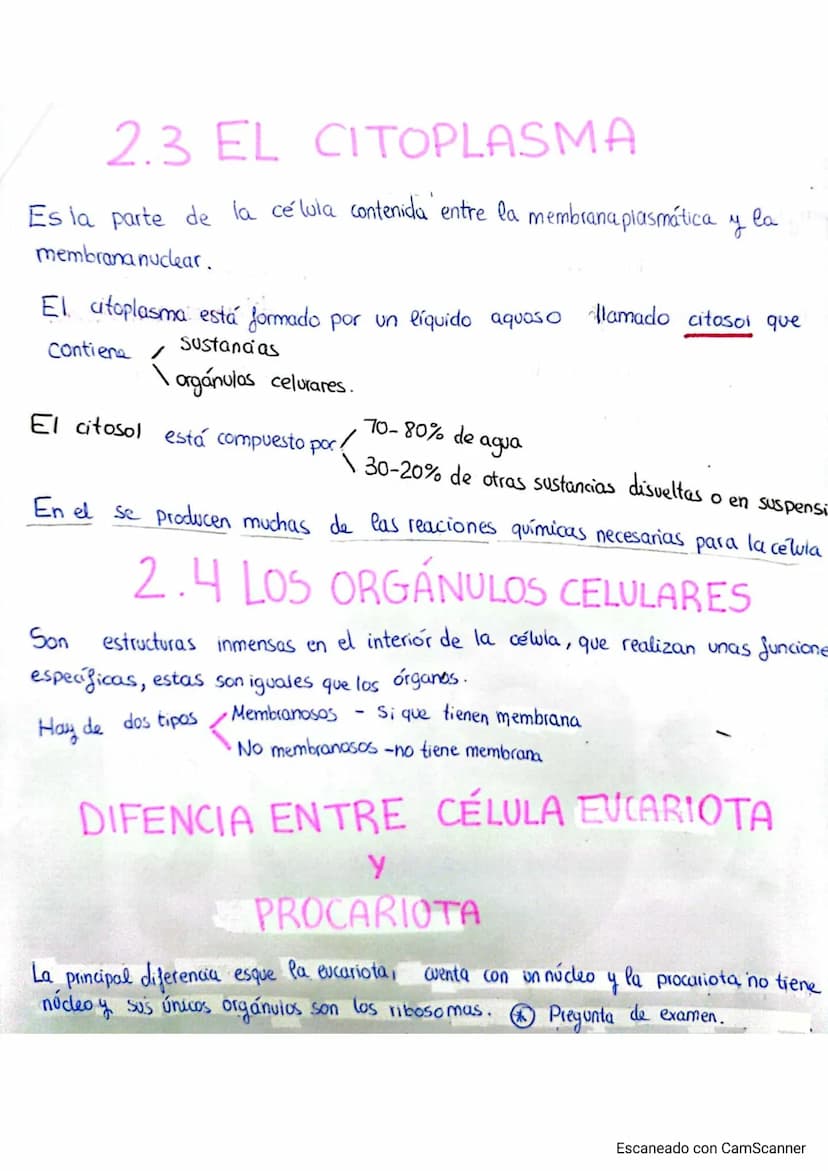 2.3 EL CITOPLASMA
Es la parte de la célula contenida entre la membrana plasmática y la
membrana nuclear.
El citoplasma está formado por un líquido aquoso llamado citosol que
contiene sustancias
orgánulos celulares.
El citosol está compuesto por 70-80% de agua
30-20% de otras sustancias disueltas o en suspensi
En el se producen muchas de las reaciones químicas necesarias para la célula
2.4 LOS ORGÁNULOS CELULARES
Son estructuras inmensas en el interior de la célula, que realizan unas funcione
específicas, estas son iguales que los órganos.
Hay de dos tipos Membranosos - Si que tienen membrana
No membranosos - no tiene membrana
DIFENCIA ENTRE CÉLULA EUCARIOTA
Y
PROCARIOTA
La principal diferencia es que la eucariota, cuenta con un núcleo y la procariota, no tiene
núcleo y sus únicos orgánulos son los ribosomas. * Pregunta de examen.
Escaneado con CamScanner